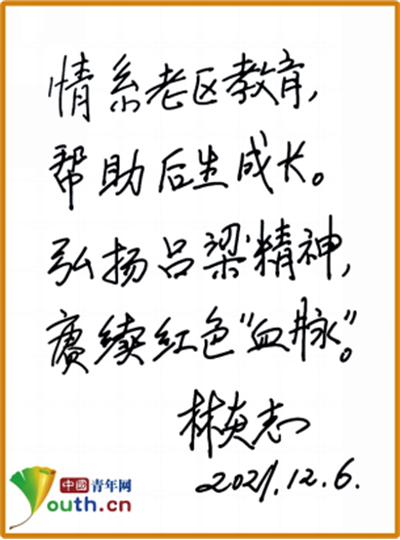 情系老区教育，
帮助后生成长。
弘扬吕梁精神，
赓续红色“血脉”。
林炎志
2021.12.6.
中國青年网
Youth.cn